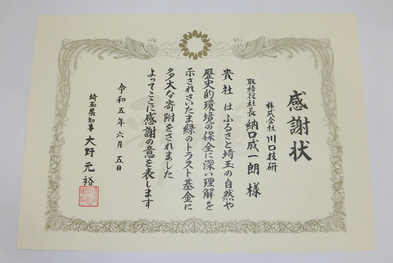 感謝状
株式会社 川口技研
取締役社長 納口成一朗 様
貴社はふるさと埼玉の自然や
歴史的環境の保全に深い理解を
示されさいたま緑のトラスト基金に
多大な寄附をされました
よってここに感謝の意を表します
令和五年六月五日
埼玉県知事 大野元裕